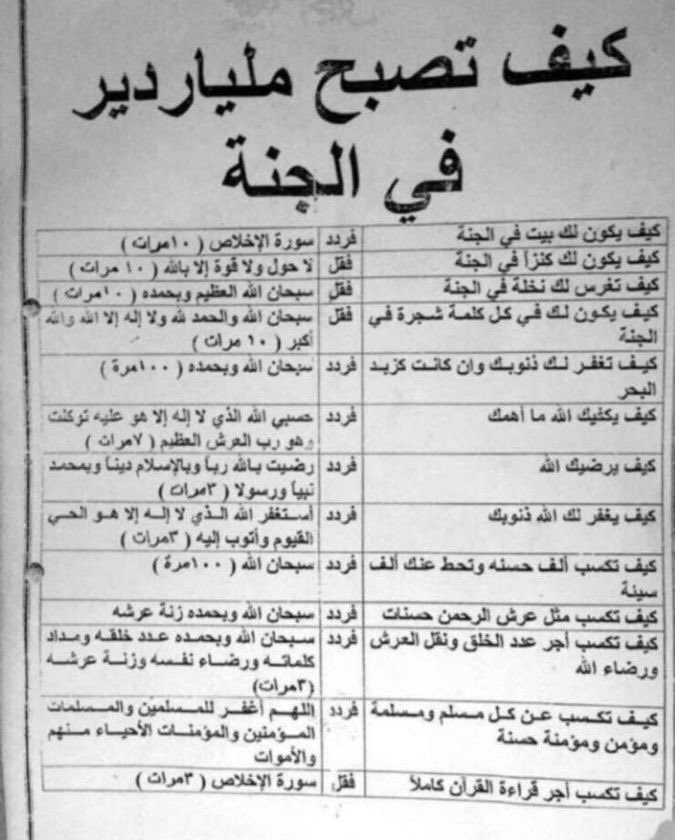 كيف تصبح ملياردير
في الجنة
كيف يكون لك بيت في الجنة فردد سورة الإخلاص ( ١٠مرات )
كيف يكون لك كنزاً في الجنة فقل لا حول ولا قوة إلا بالله ( ١٠ مرات )
كيف تغرس لك نخلة في الجنة فقل سبحان الله العظيم وبحمده ( ١٠مرات )
كيف يكون لك في كل كلمة شجرة في فقل سبحان الله والحمد لله ولا إله إلا الله والله
الجنة أكبر ( ١٠ مرات )
كيف تغفر لك ذنوبك وان كانت كزبد فردد سبحان الله وبحمده ( ١٠٠مرة )
البحر
كيف يكفيك الله ما أهمك فردد حسبي الله الذي لا إله إلا هو عليه توكلت
وهو رب العرش العظيم ( ٧مرات )
كيف يرضيك الله فردد رضيت بالله رباً وبالإسلام ديناً وبمحمد
نبياً ورسولا ( ٣مرات )
كيف يغفر لك الله ذنوبك فردد أستغفر الله الذي لا إله إلا هو الحي
القيوم وأتوب إليه ( ٣مرات )
كيف تكسب ألف حسنه وتحط عنك ألف فردد سبحان الله ( ١٠٠مرة )
سيئة
كيف تكسب مثل عرش الرحمن حسنات فردد سبحان الله وبحمده زنة عرشه
كيف تكسب أجر عدد الخلق وثقل العرش فردد سبحان الله وبحمده عدد خلقه ومداد
ورضاء الله كلماته ورضاء نفسه وزنة عرشه
(٣مرات)
كيف تكسب عن كل مسلم ومسلمة فردد اللهم أغفر للمسلمين والمسلمات
ومؤمن ومؤمنة حسنة المؤمنين والمؤمنات الأحياء منهم
والأموات
كيف تكسب أجر قراءة القرآن كاملاً فقل سورة الإخلاص ( ٣مرات )